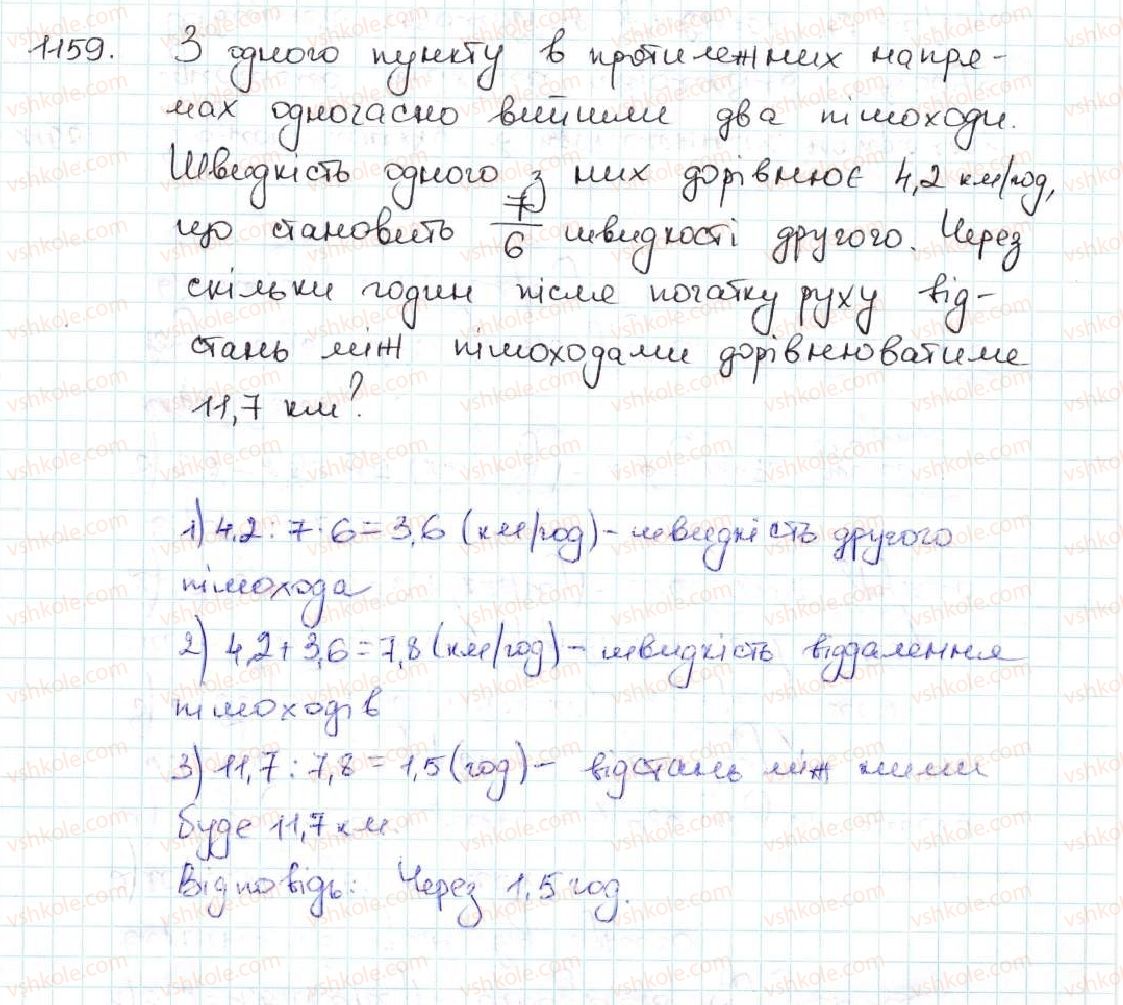 1159. З одного пункту в протилежних напря-
мах одночасно вийшли два пішоходи.
Швидкість одного з них дорівнює 4,2 км/год,
що становить 7/6 швидкості другого. Через
скільки годин після початку руху від-
стань між пішоходами дорівнюватиме
11,7 км?
1) 4,2 : 7 : 6 = 3,6 (км/год) - швидкість другого
пішохода
2) 4,2 + 3,6 = 7,8 (км/год) - швидкість віддалення
пішоходів
3) 11,7 : 7,8 = 1,5 (год) - відстань між ними
буде 11,7 км.
Відповідь: Через 1,5 год.